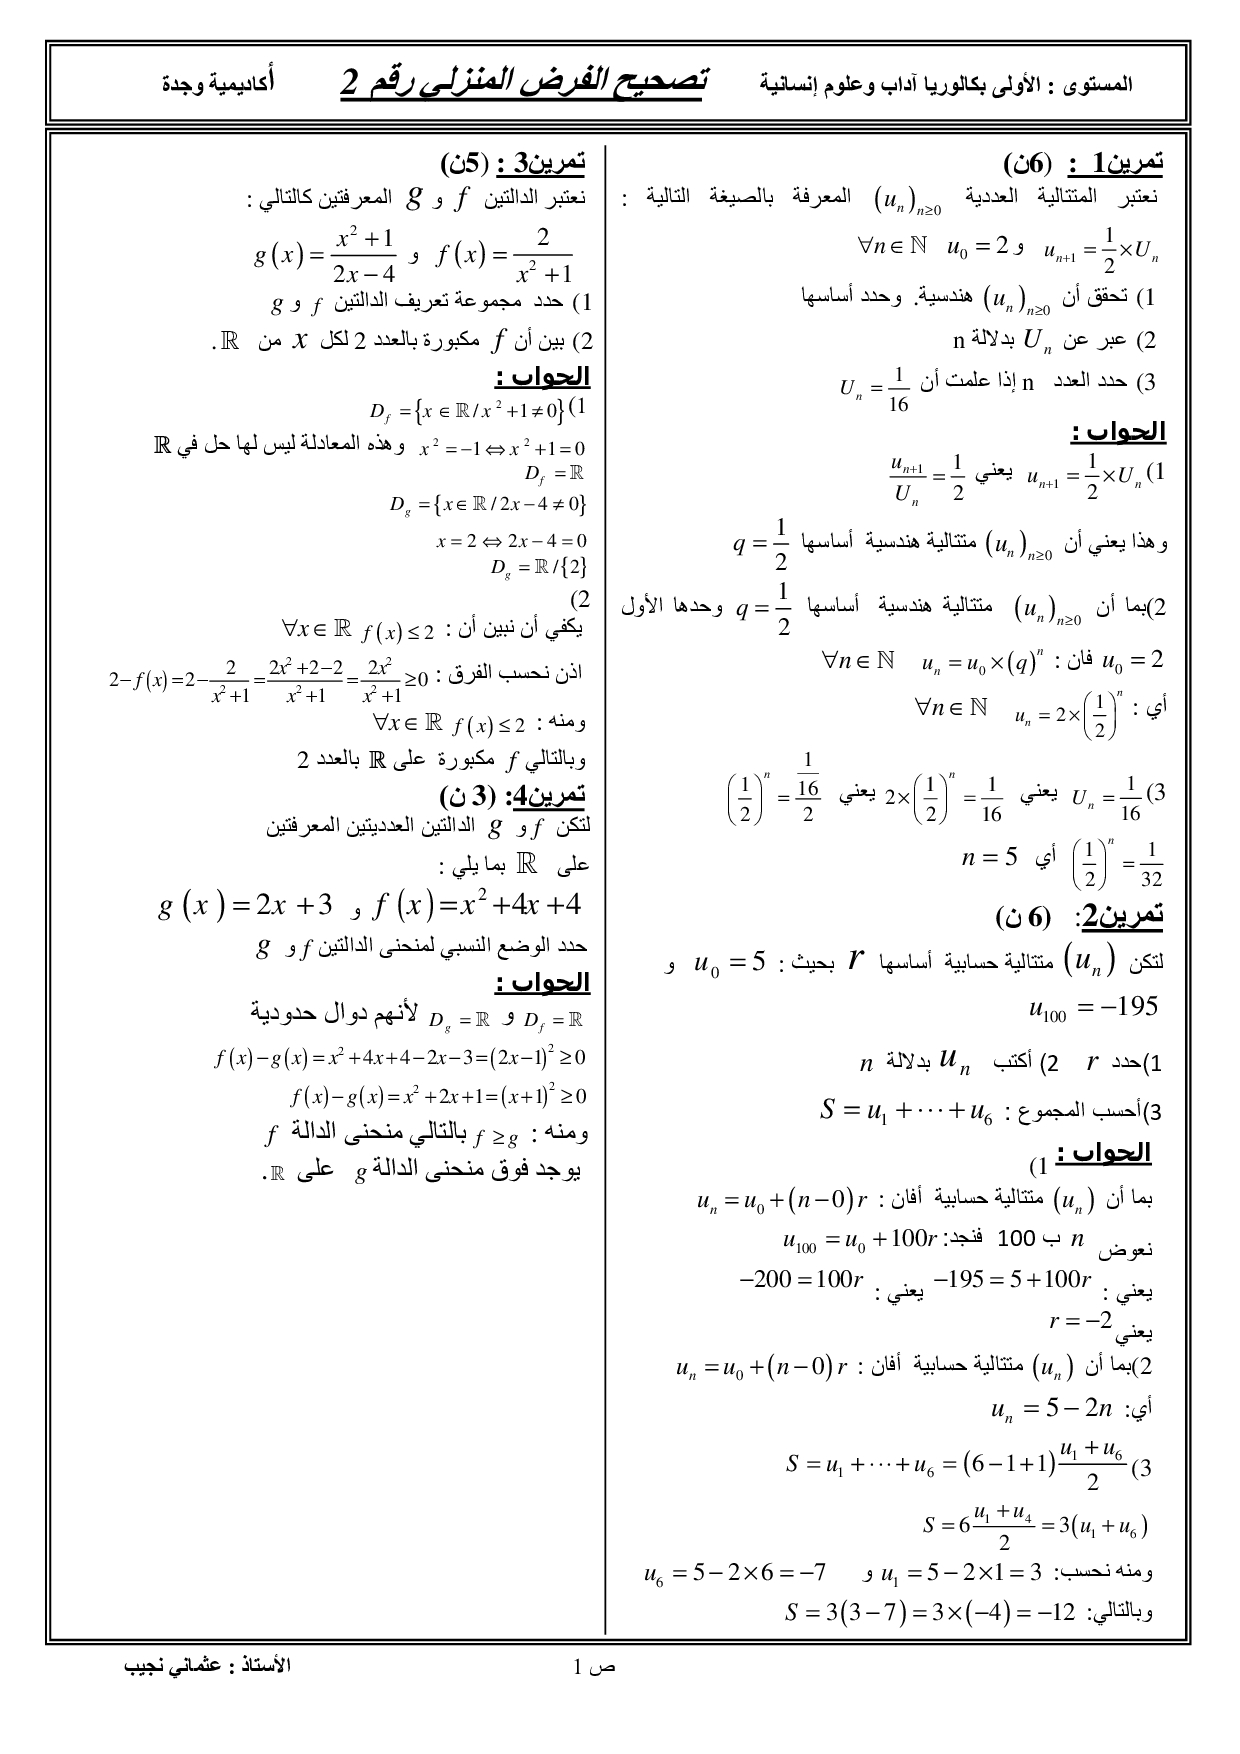 المستوى : الأولى بكالوريا آداب وعلوم إنسانية تصحيح الفرض المنزلي رقم 2 أكاديمية وجدة
تمرين1 : (6ن)
نعتبر المتتالية العددية (u_n)_{n≥0} المعرفة بالصيغة التالية :
u_{n+1} = 1/2 × U_n و u_0 = 2 ∀n ∈ ℕ
1) تحقق أن (u_n)_{n≥0} هندسية. وحدد أساسها
2) عبر عن U_n بدلالة n
3) حدد العدد n إذا علمت أن U_n = 1/16
الجواب :
1) u_{n+1} = 1/2 × U_n يعني u_{n+1}/U_n = 1/2
وهذا يعني أن (u_n)_{n≥0} متتالية هندسية أساسها q = 1/2
2)بما أن (u_n)_{n≥0} متتالية هندسية أساسها q = 1/2 وحدها الأول
u_0 = 2 فان : u_n = u_0 × (q)^n ∀n ∈ ℕ
أي : u_n = 2 × (1/2)^n ∀n ∈ ℕ
3) U_n = 1/16 يعني 2 × (1/2)^n = 1/16 يعني (1/2)^n = (1/16)/2
(1/2)^n = 1/32 أي n = 5
تمرين2: (6 ن)
لتكن (u_n) متتالية حسابية أساسها r بحيث : u_0 = 5 و
u_100 = −195
1)حدد r 2) أكتب u_n بدلالة n
3)أحسب المجموع : S = u_1 + ⋯ + u_6
الجواب :
1)
بما أن (u_n) متتالية حسابية أفان : u_n = u_0 + (n − 0) r
نعوض n ب 100 فنجد: u_100 = u_0 + 100r
يعني : −195 = 5 + 100r يعني : −200 = 100r
يعني r = −2
2)بما أن (u_n) متتالية حسابية أفان : u_n = u_0 + (n − 0) r
أي: u_n = 5 − 2n
3) S = u_1 + ⋯ + u_6 = (6 − 1 + 1) (u_1 + u_6)/2
S = 6 (u_1 + u_4)/2 = 3(u_1 + u_6)
ومنه نحسب: u_1 = 5 − 2×1 = 3 و u_6 = 5 − 2×6 = −7
وبالتالي: S = 3(3 − 7) = 3×(−4) = −12
تمرين3 : (5ن)
نعتبر الدالتين f و g المعرفتين كالتالي :
f(x) = 2/(x² + 1) و g(x) = (x² + 1)/(2x − 4)
1) حدد مجموعة تعريف الدالتين f و g
2) بين أن f مكبورة بالعدد 2 لكل x من ℝ .
الجواب :
1) D_f = {x ∈ ℝ / x² + 1 ≠ 0}
x² = −1 ⇔ x² + 1 = 0 وهذه المعادلة ليس لها حل في ℝ
D_f = ℝ
D_g = {x ∈ ℝ / 2x − 4 ≠ 0}
x = 2 ⇔ 2x − 4 = 0
D_g = ℝ / {2}
2)
يكفي أن نبين أن : f(x) ≤ 2 ∀x ∈ ℝ
اذن نحسب الفرق : 2 − f(x) = 2 − 2/(x² + 1) = (2x² + 2 − 2)/(x² + 1) = 2x²/(x² + 1) ≥ 0
ومنه : f(x) ≤ 2 ∀x ∈ ℝ
وبالتالي f مكبورة على ℝ بالعدد 2
تمرين4: (3 ن)
لتكن f و g الدالتين العدديتين المعرفتين
على ℝ بما يلي :
f(x) = x² + 4x + 4 و g(x) = 2x + 3
حدد الوضع النسبي لمنحنى الدالتين f و g
الجواب :
D_f = ℝ و D_g = ℝ لأنهم دوال حدودية
f(x) − g(x) = x² + 4x + 4 − 2x − 3 = (2x − 1)² ≥ 0
f(x) − g(x) = x² + 2x + 1 = (x + 1)² ≥ 0
ومنه : f ≥ g بالتالي منحنى الدالة f
يوجد فوق منحنى الدالة g على ℝ.
ص 1 الأستاذ : عثماني نجيب